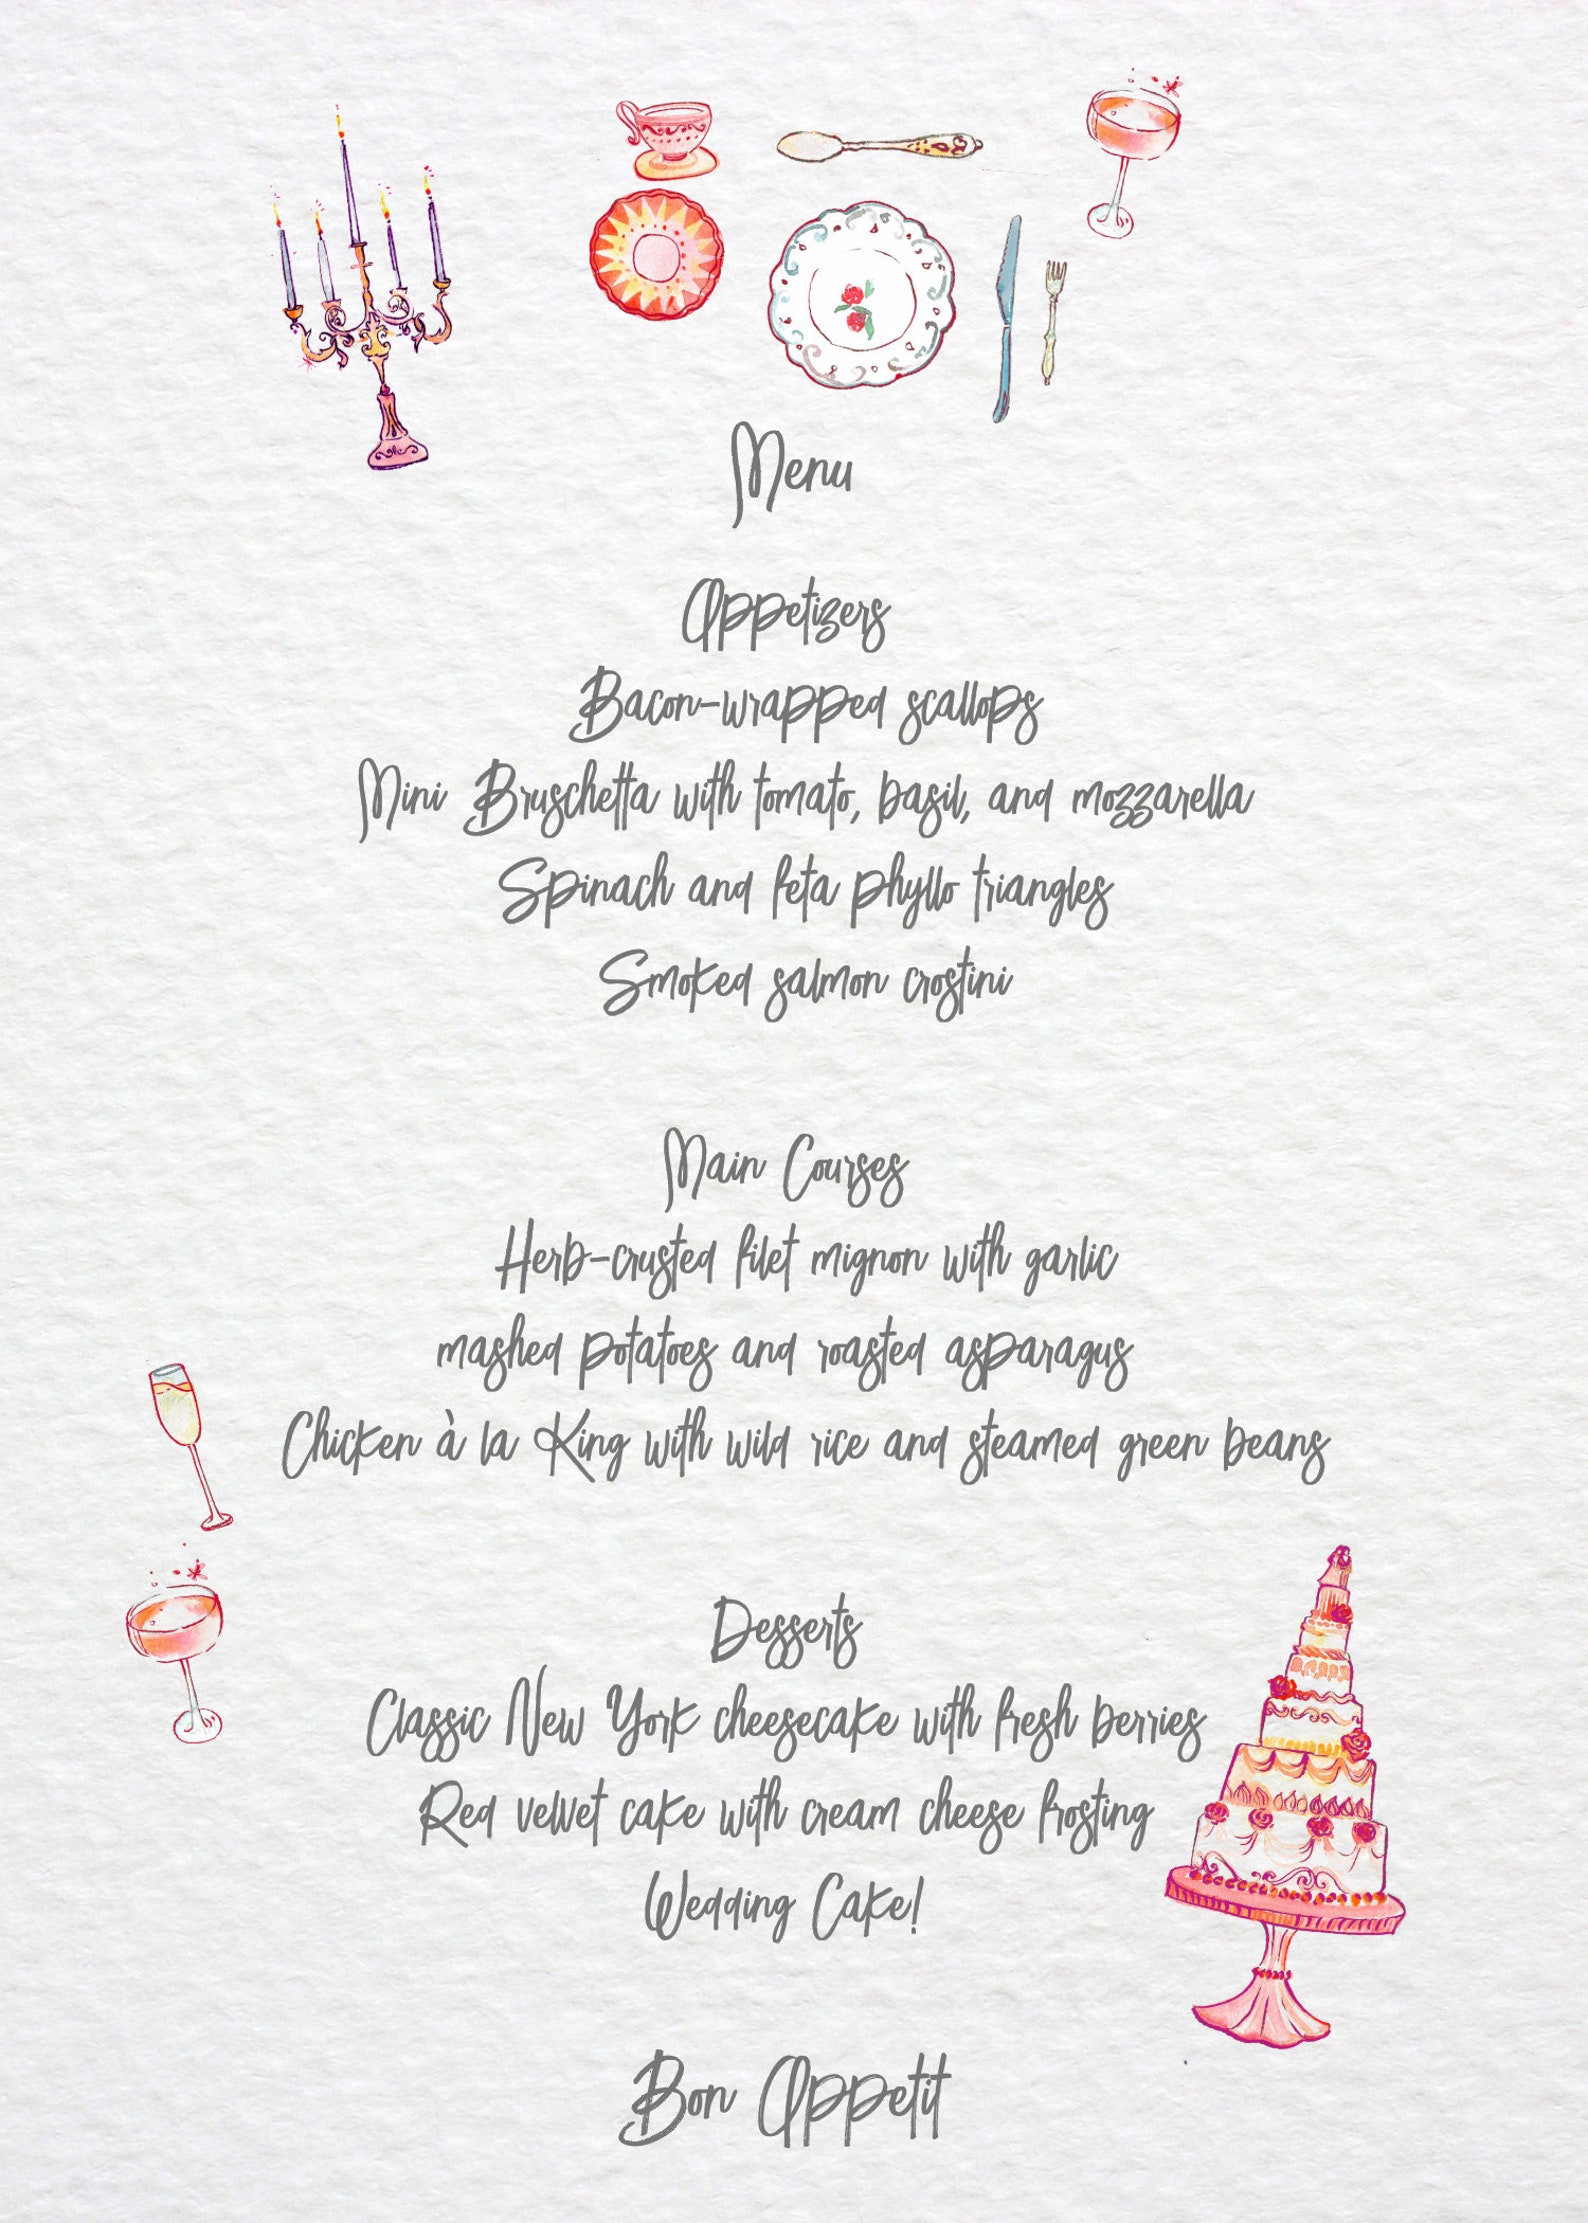 Menu
Appetizers
Bacon-wrapped scallops
Mini Bruschetta with tomato, basil, and mozzarella
Spinach and feta phyllo triangles
Smoked salmon crostini
Main Courses
Herb-crusted filet mignon with garlic
mashed potatoes and roasted asparagus
Chicken à la King with wild rice and steamed green beans
Desserts
Classic New York cheesecake with fresh berries
Red velvet cake with cream cheese frosting
Wedding Cake!
Bon Appetit